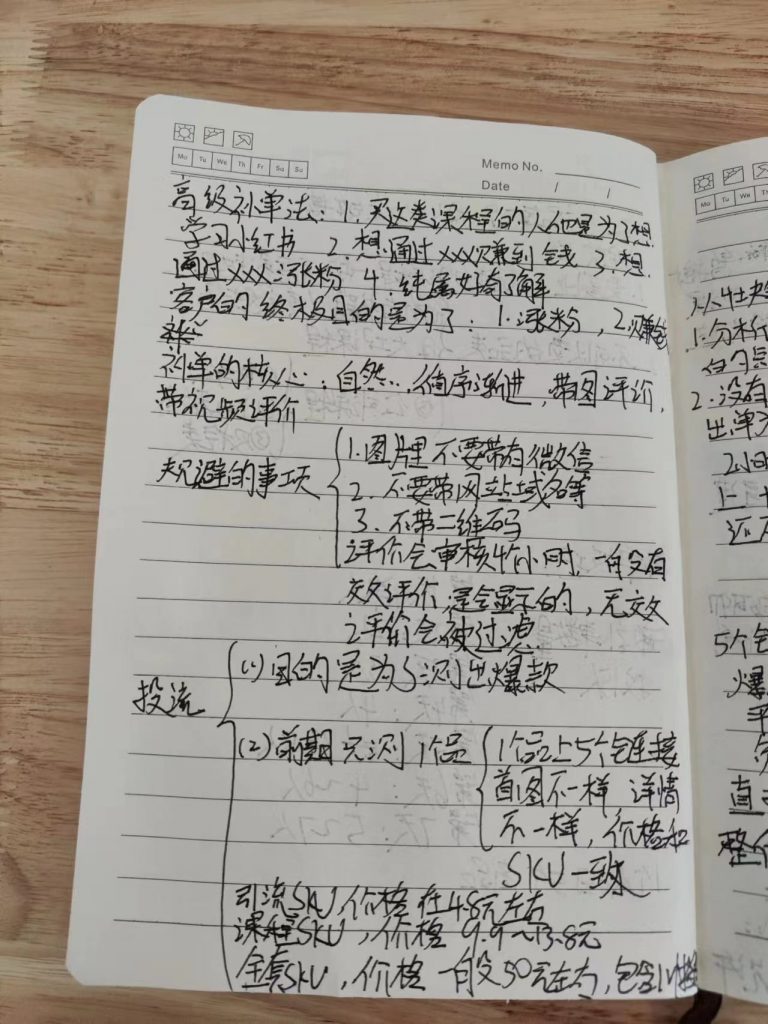 Mo Tu We Th Fr Sa Su
Memo No.
Date / /
高级补单法：1. 买这类课程的人他是为了想
学习小红书 2. 想通过xxx赚到钱 3. 想
通过xxx涨粉 4. 纯属好奇了解
客户的终极目的是为了：1. 涨粉，2. 赚钱
补单的核心：自然..，循序渐进，带图评价，
带视频评价
规避的事项
1. 图片里不要带有微信
2. 不要带网站域名等
3. 不带二维码
评价会审核4个小时，一般有
效评价，是会显示的，无效
评价会被过滤
投流
(1) 目的是为了测出爆款
(2) 前期先测1个品
1个品上5个链接
首图不一样 详情
不一样，价格和
SKU一致
引流SKU，价格在4.8元左右
课程SKU，价格9.9~13.8元
全套SKU，价格一般50元左右，包含
Mo Tu We Th
1. 分析
2. 没有
出单
5个
爆
直
整个